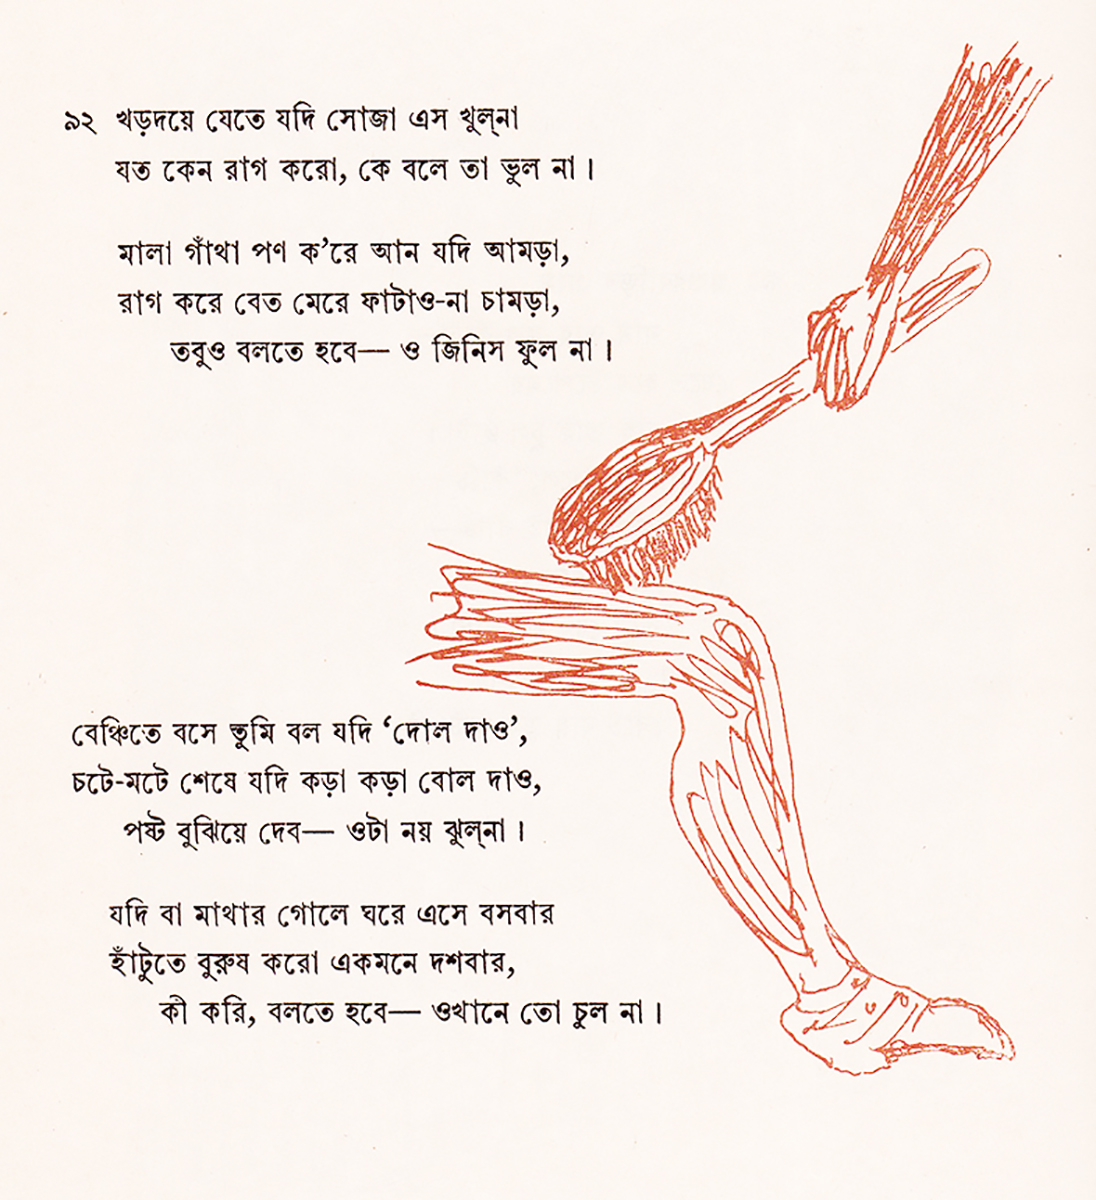 ৯২ খড়দয়ে যেতে যদি সোজা এস খুল্‌না
যত কেন রাগ করো, কে বলে তা ভুল না।
মালা গাঁথা পণ ক’রে আন যদি আমড়া,
রাগ করে বেত মেরে ফাটাও-না চামড়া,
তবুও বলতে হবে— ও জিনিস ফুল না।
বেঞ্চিতে বসে তুমি বল যদি ‘দোল দাও’,
চটে-মটে শেষে যদি কড়া কড়া বোল দাও,
পষ্ট বুঝিয়ে দেব— ওটা নয় ঝুল্‌না।
যদি বা মাথার গোলে ঘরে এসে বসবার
হাঁটুতে বুরুষ করো একমনে দশবার,
কী করি, বলতে হবে— ওখানে তো চুল না।